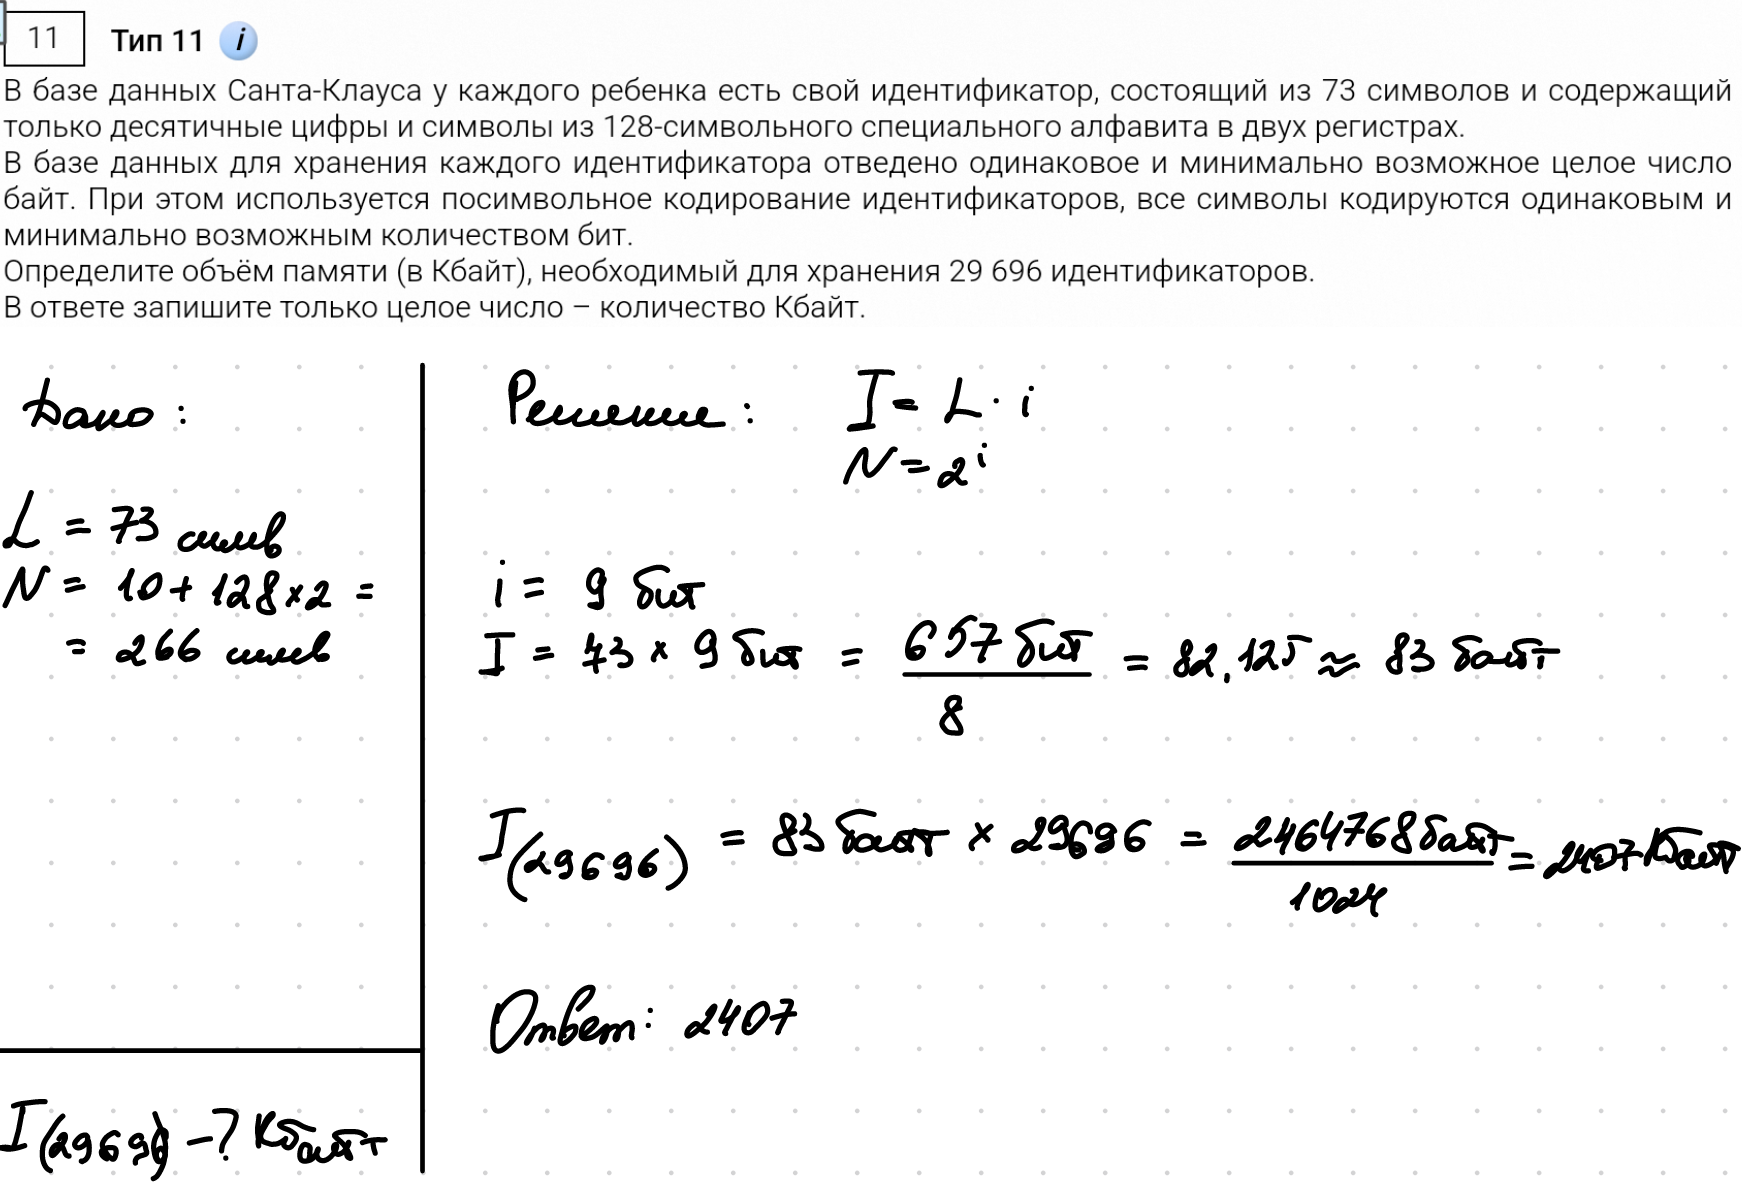 11 Тип 11 i
В базе данных Санта-Клауса у каждого ребенка есть свой идентификатор, состоящий из 73 символов и содержащий
только десятичные цифры и символы из 128-символьного специального алфавита в двух регистрах.
В базе данных для хранения каждого идентификатора отведено одинаковое и минимально возможное целое число
байт. При этом используется посимвольное кодирование идентификаторов, все символы кодируются одинаковым и
минимально возможным количеством бит.
Определите объём памяти (в Кбайт), необходимый для хранения 29 696 идентификаторов.
В ответе запишите только целое число – количество Кбайт.
Дано:
L = 73 симв
N = 10 + 128 × 2 =
= 266 симв
I(29696) – ? Кбайт
Решение: I = L · i
N = 2^i
i = 9 бит
I = 73 × 9 бит = 657 бит / 8 = 82,125 ≈ 83 байт
I(29696) = 83 байт × 29696 = 2464768 байт / 1024 = 2407 Кбайт
Ответ: 2407